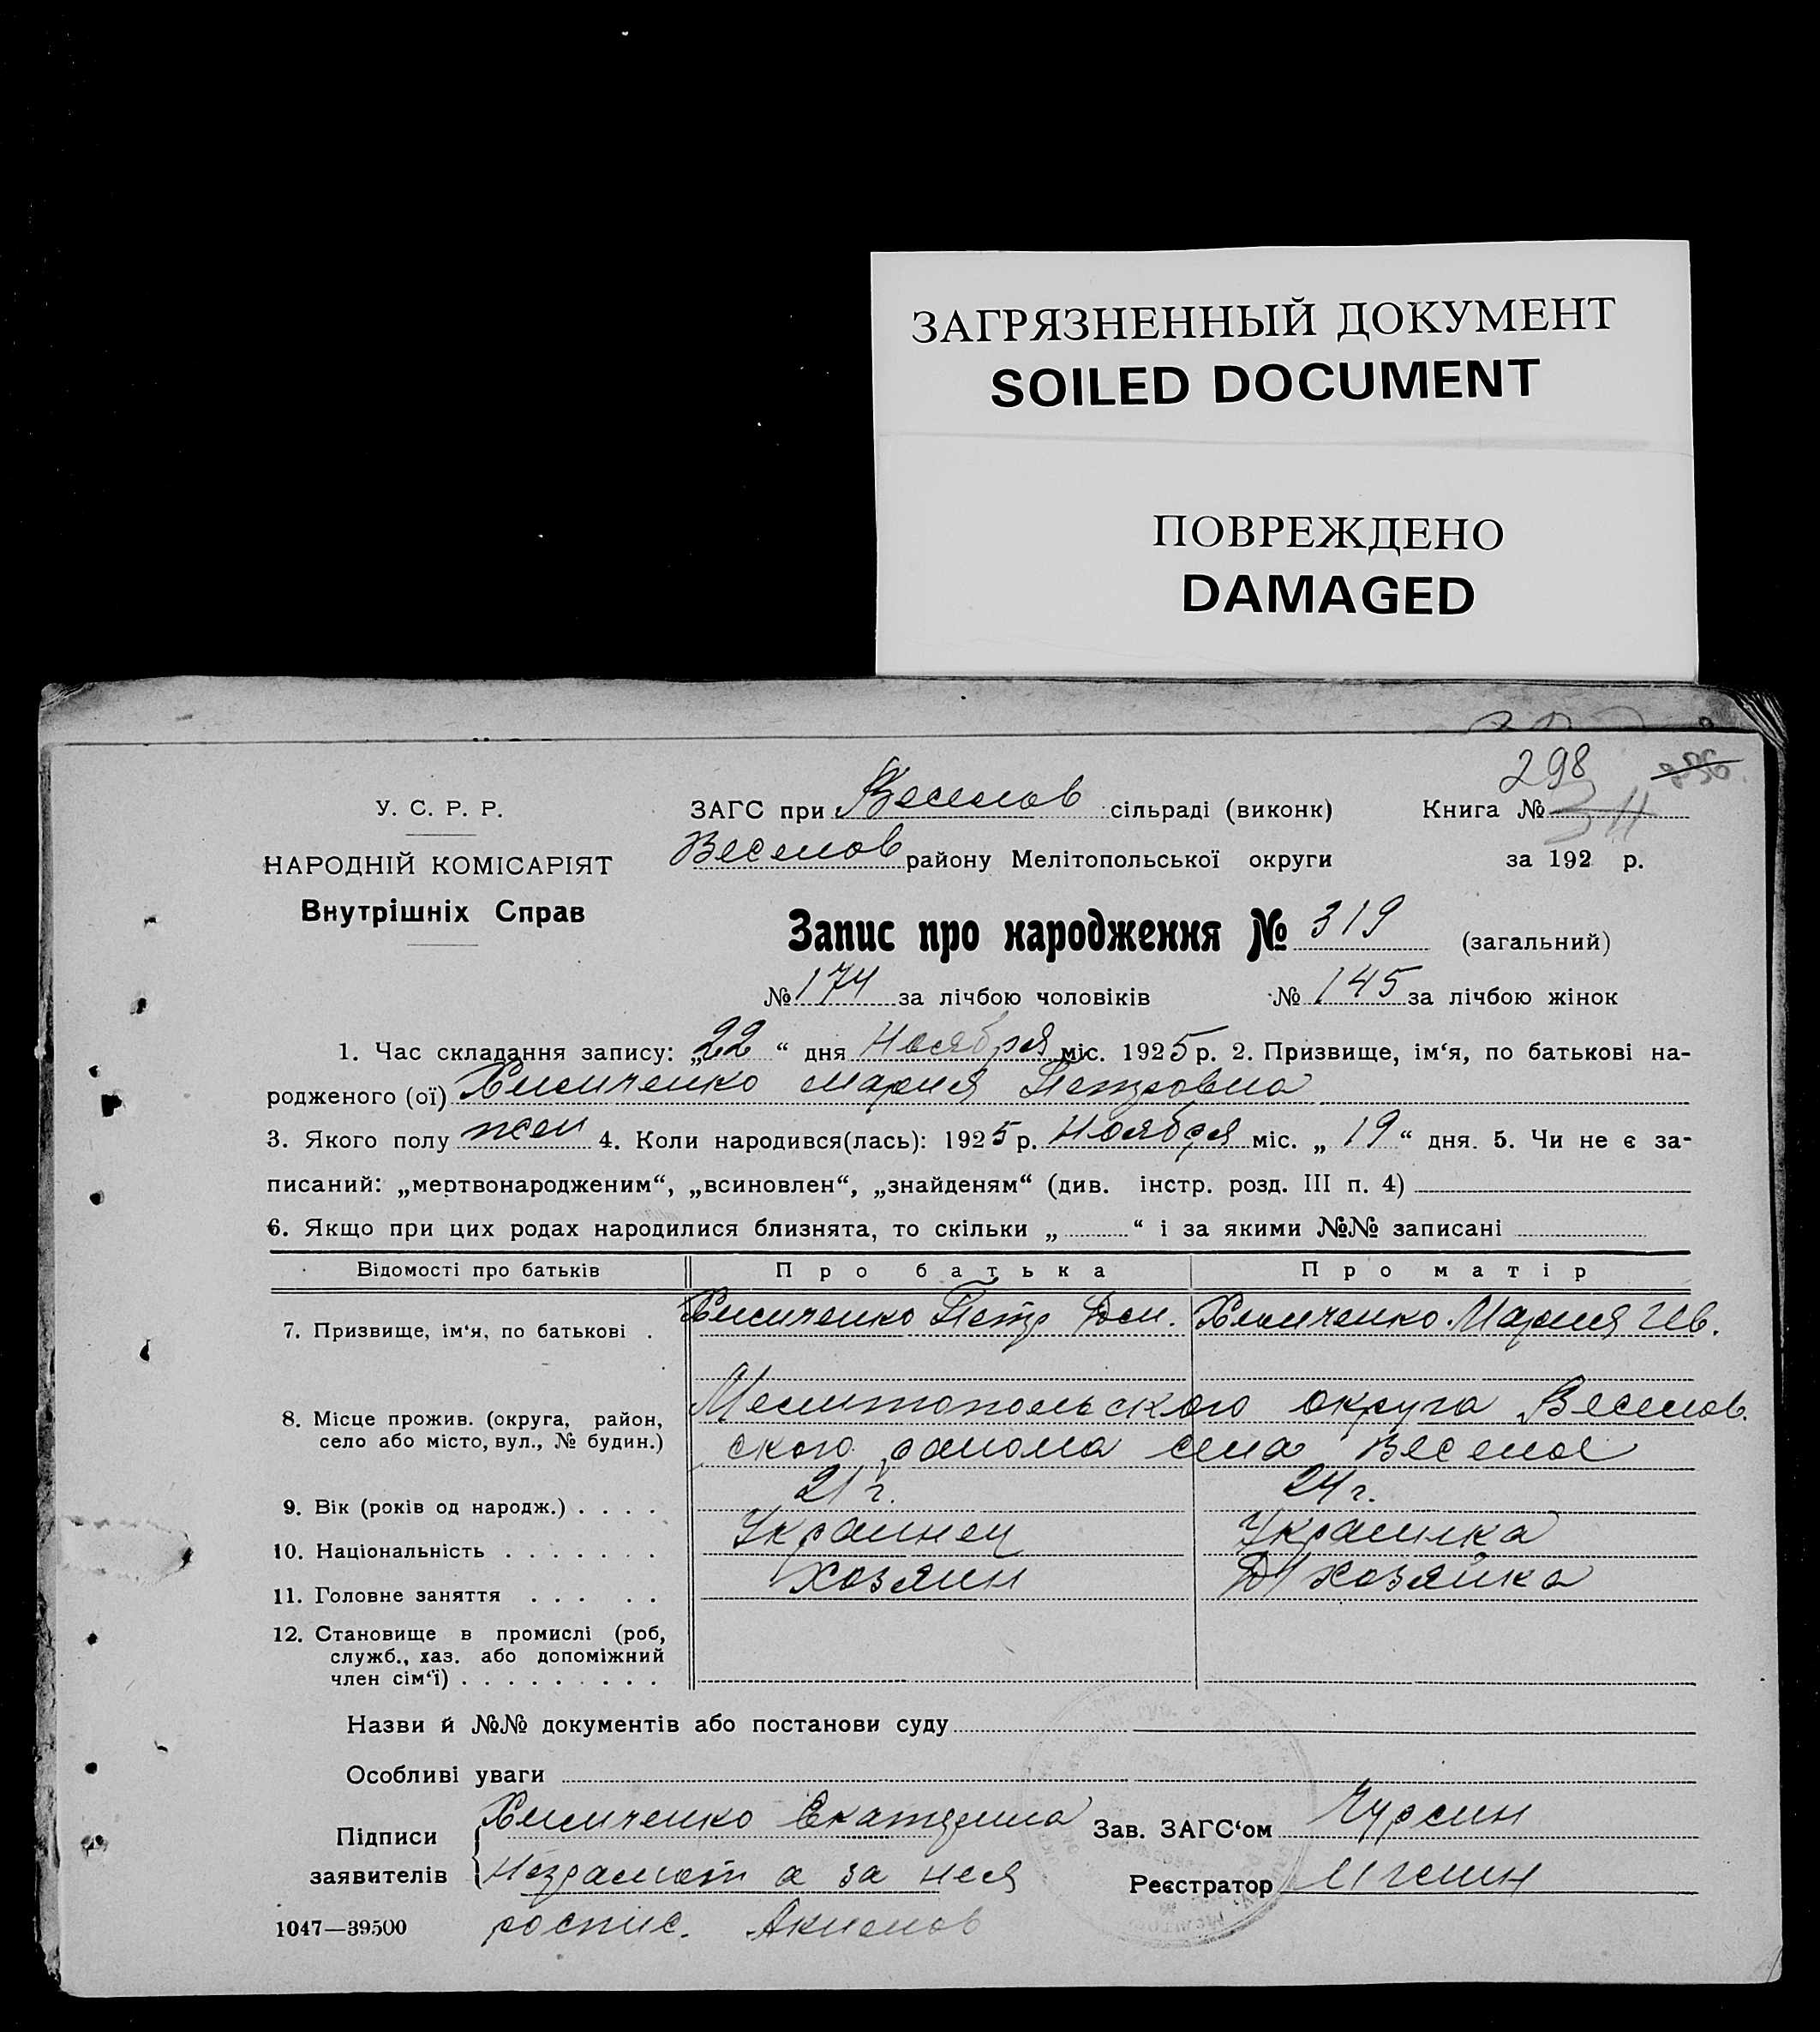 ЗАГРЯЗНЕННЫЙ ДОКУМЕНТ
SOILED DOCUMENT
ПОВРЕЖДЕНО
DAMAGED
298
У. С. Р. Р.
НАРОДНІЙ КОМІСАРІЯТ
Внутрішніх Справ
ЗАГС при Веселов сільраді (виконк) Книга №
Веселов району Мелітопольської округи за 192 р.
Запис про народження № 319 (загальний)
№ 174 за лічбою чоловіків № 145 за лічбою жінок
1. Час складання запису: „22“ дня Ноября міс. 1925 р. 2. Призвище, ім‘я, по батькові на-
родженого (ої) Хиличенко Мария Петровна
3. Якого полу жен 4. Коли народився(лась): 1925 р. Ноября міс. „19“ дня. 5. Чи не є за-
писаний: „мертвонародженим“, „всиновлен“, „знайденям“ (див. інстр. розд. III п. 4)
6. Якщо при цих родах народилися близнята, то скільки „ “ і за якими №№ записані
Відомості про батьків Про батька Про матір
7. Призвище, ім‘я, по батькові . Хиличенко Петр Хиличенко Мария Ив.
8. Місце прожив. (округа, район, село або місто, вул., № будин.) Мелитопольского округа Веселов.
ского района села Веселое
9. Вік (років од народж.) . . . . 21 г. 24 г.
10. Національність . . . . . . . Украинец Украинка
11. Головне заняття . . . . . Хозяин Д/хозяйка
12. Становище в промислі (роб,
служб., хаз. або допоміжний
член сім‘ї) . . . . . . . . .
Назви й №№ документів або постанови суду
Особливі уваги
Підписи заявителів Хиличенко Екатерина
Неграмот а за нея
роспис. Акимов
Зав. ЗАГС‘ом Чурсин
Реєстратор
1047—39500